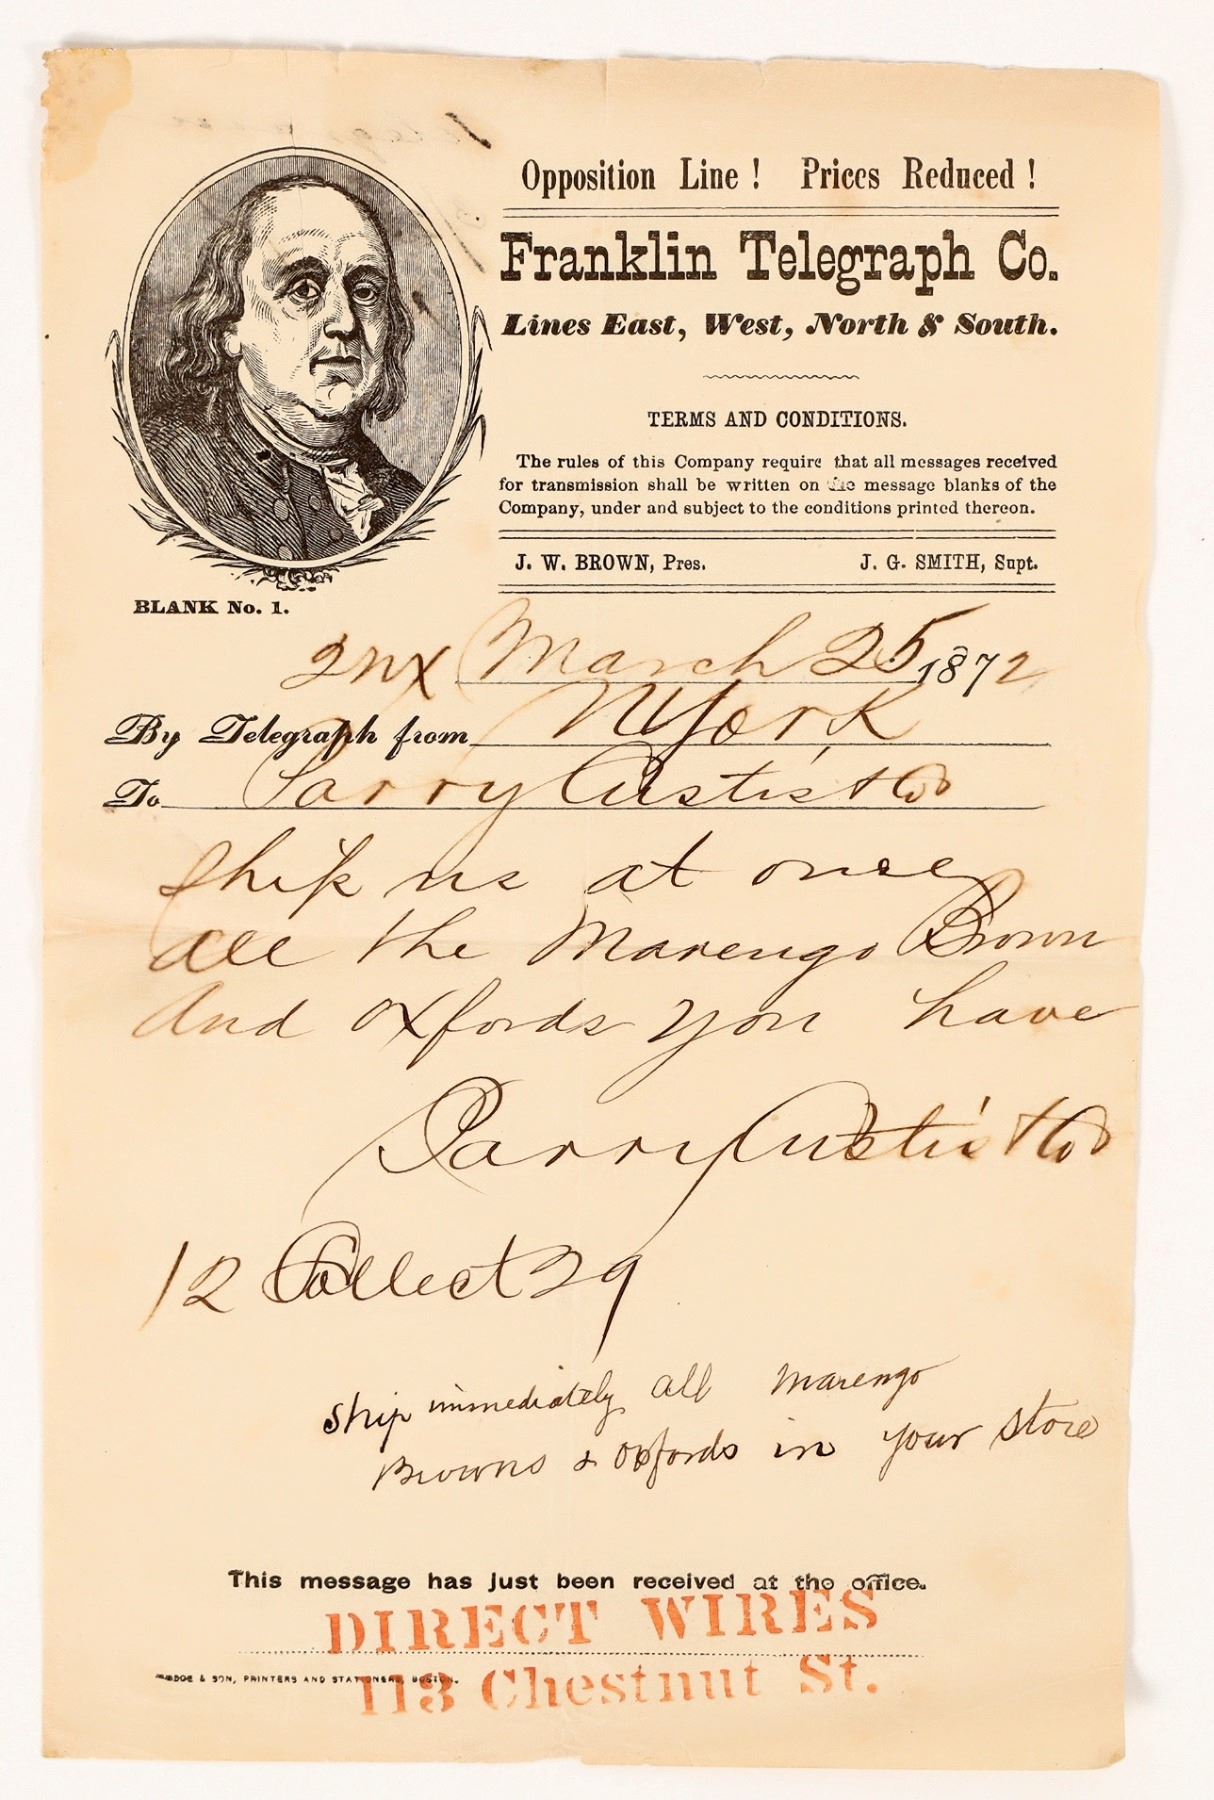 Opposition Line ! Prices Reduced !
Franklin Telegraph Co.
Lines East, West, North & South.
TERMS AND CONDITIONS.
The rules of this Company require that all messages received
for transmission shall be written on the message blanks of the
Company, under and subject to the conditions printed thereon.
J. W. BROWN, Pres. J. G. SMITH, Supt.
BLANK No. 1.
2nx March 25 1872
By Telegraph from N York
To Parry Custis & Co
Ship us at once
All the Marengo Brown
And Oxfords you have
Parry Custis & Co
12 Collect 29
Ship immediately all Marengo
Browns & Oxfords in your store
This message has just been received at the office.
DIRECT WIRES
& SON, PRINTERS AND STATIONERS, BOSTON.
113 Chestnut St.